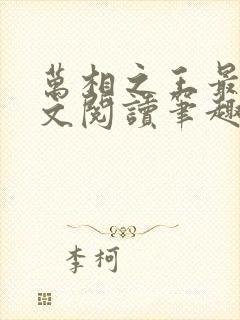 萬相之王最
文閱讀筆趣
李柯